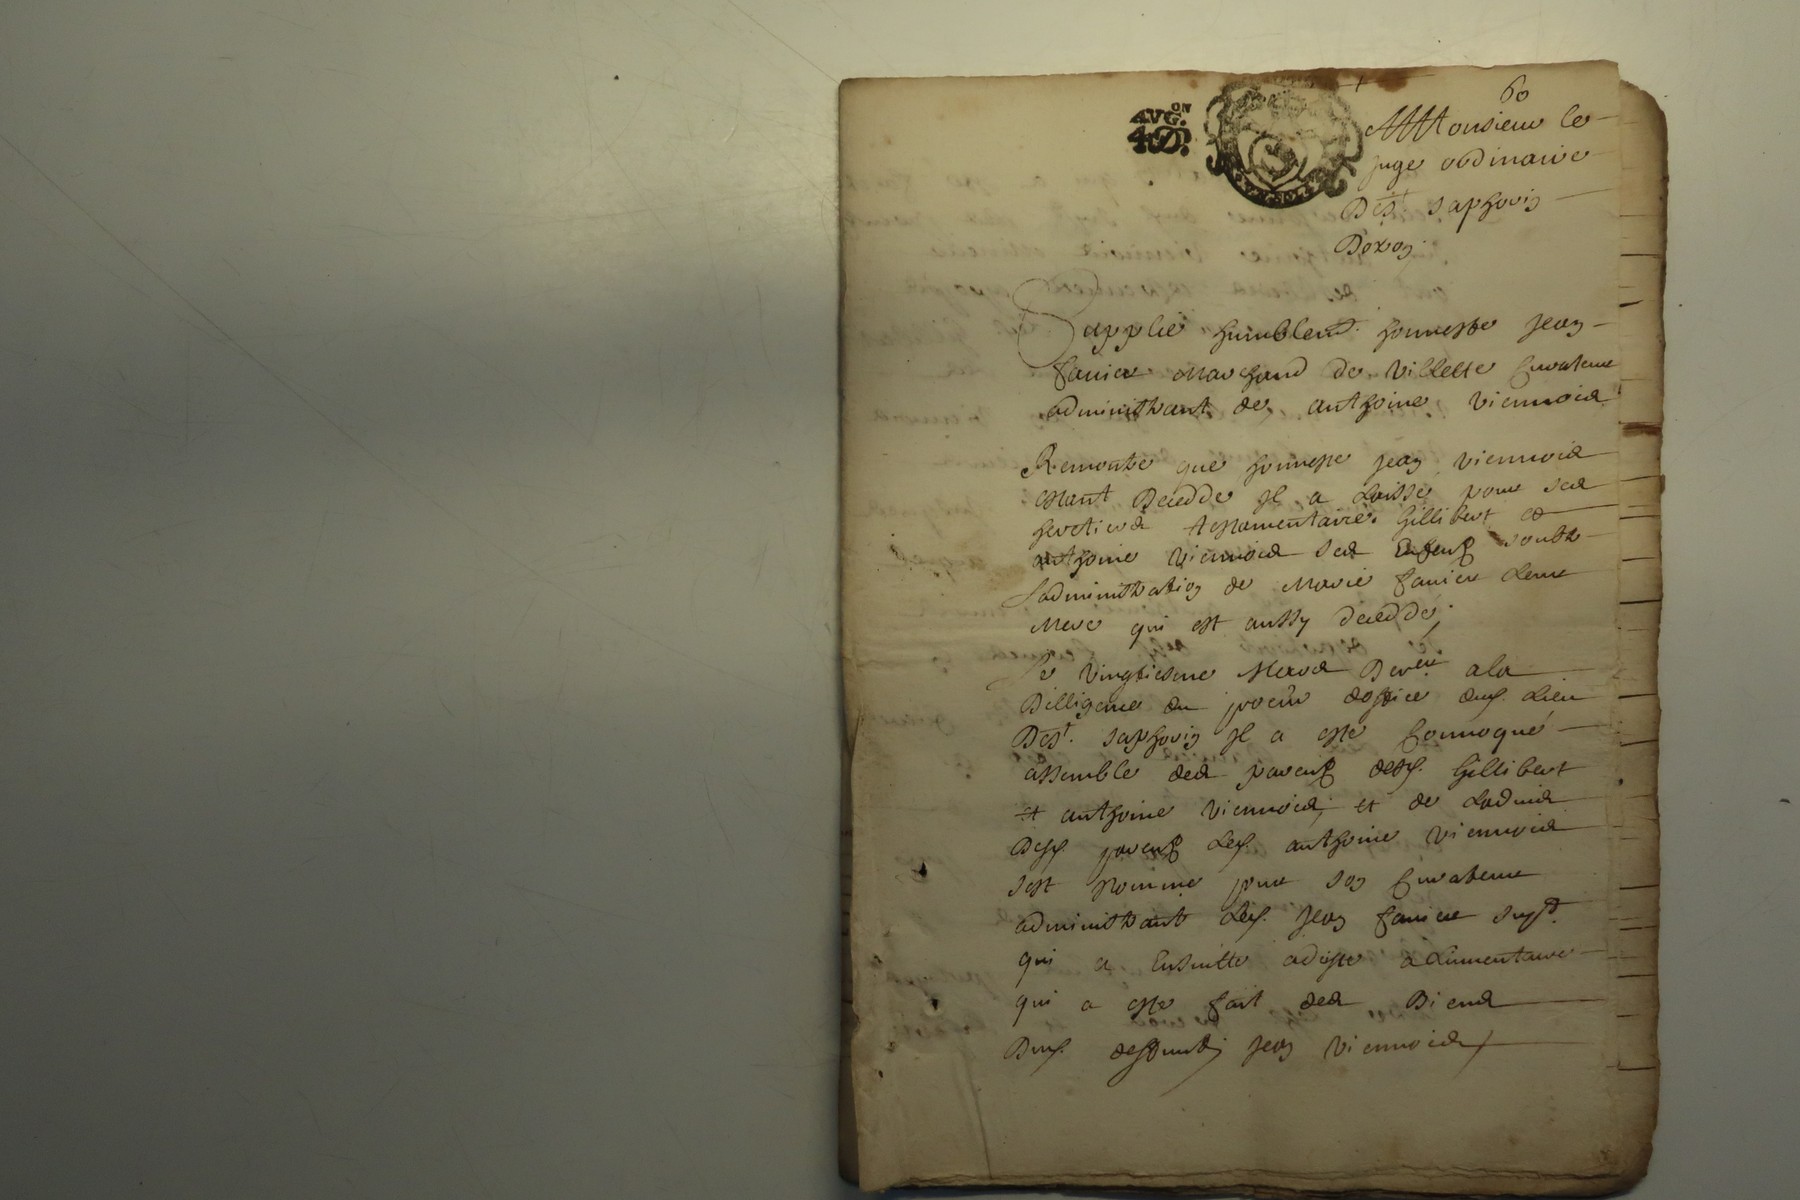 60
AVG.ON
4 D.
A Monsieur le
juge ordinaire
de St saphorin
Dozon
Supplie humblemt. honneste jean
fanier marchand de villette Curateur
administrant de anthoine viennois
Remontre que honneste jean viennois
estant decedde il a laisse pour ses
heretiers testamentaires Gillibert et
anthoine viennois ses enfens soubz
ladministration de marie fanier leur
mere qui est aussy decedde,
le vingtiesme mars dernier a la
dilligence du procur doffice dud. lieu
de St. saphorin il a este convoqué
assemble des parens desd. Gillibert
et anthoine viennois, et de ladvis
desd parens led. anthoine viennois
sest nomme pour son Curateur
administrant led. jean fanier supt.
qui a ensuitte adiste a linventaire
qui a este fait des biens
dud. deffunct jean viennois